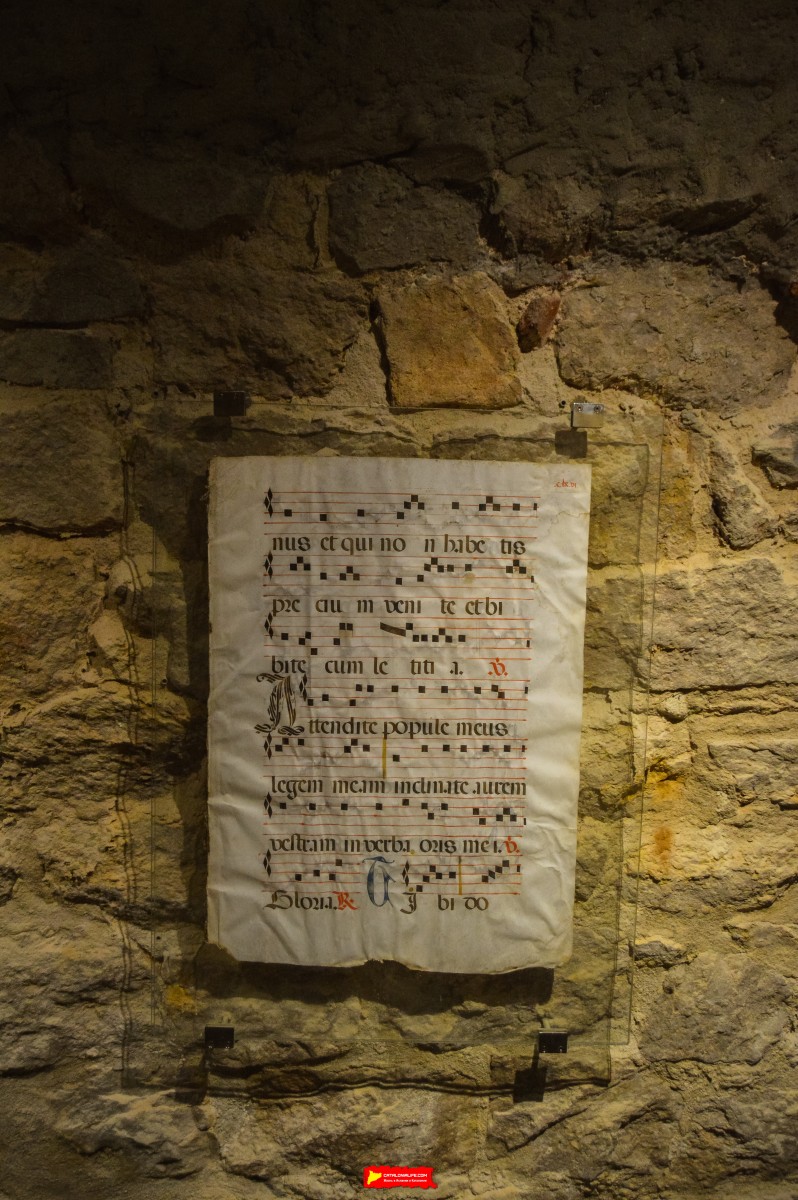 nus et qui no n habe tis
pre ciu m veni te et bi
bite cum le titi a. V.
Attendite popule meus
legem meam inclinate aurem
vestram in verba oris mei. V.
Gloria. R. Si bi do
CATALONIALIFE.COM